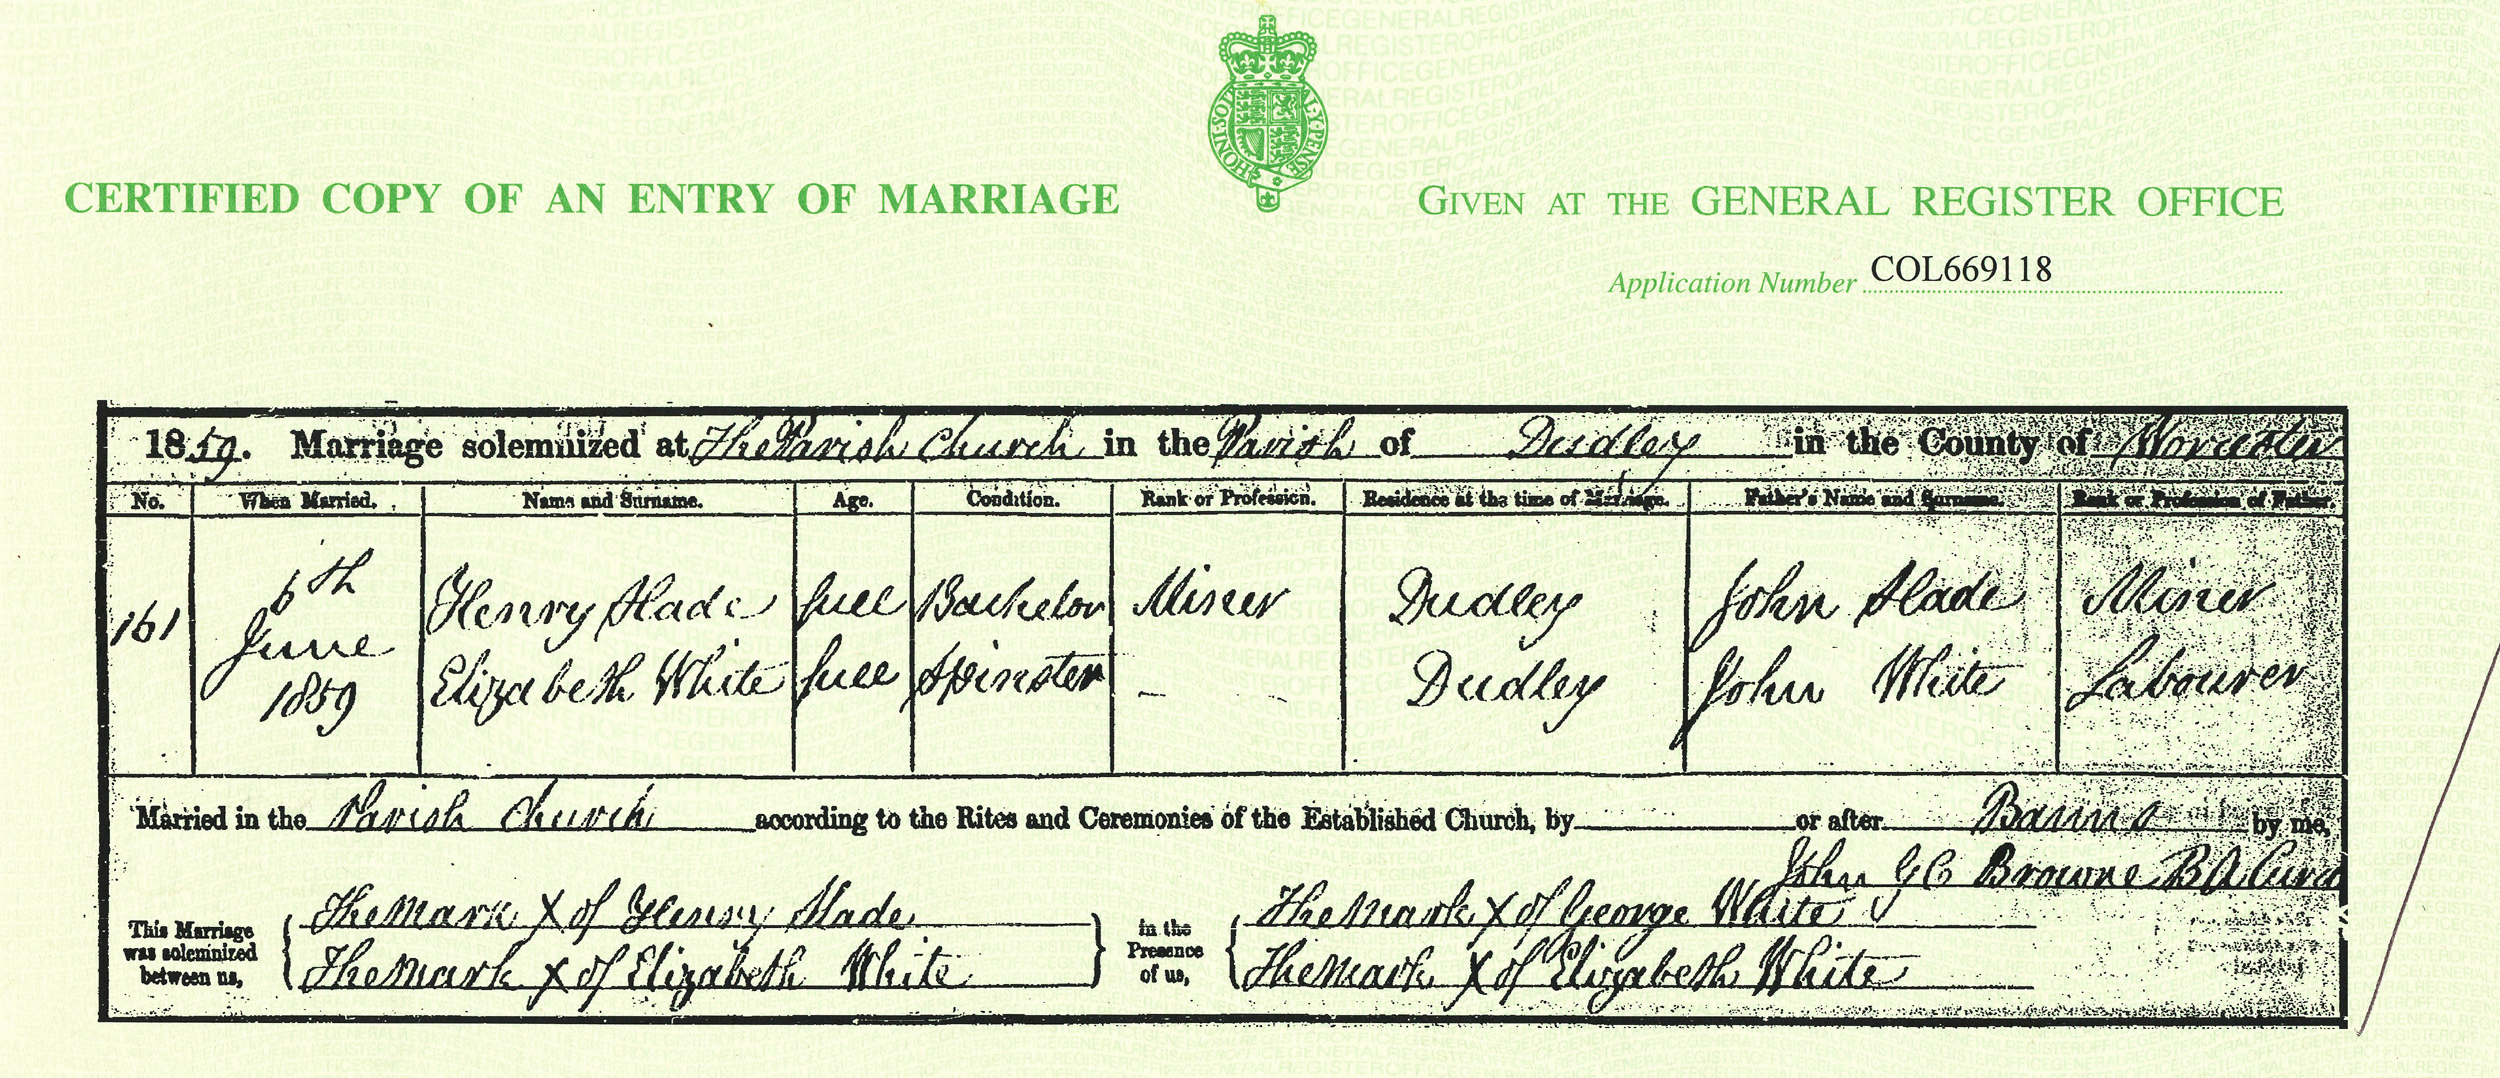 HONI·SOIT Q AL·Y·PENSE
CERTIFIED COPY OF AN ENTRY OF MARRIAGE
GIVEN AT THE GENERAL REGISTER OFFICE
Application Number COL669118
1859. Marriage solemnized at The Parish Church in the Parish of Dudley in the County of Worcester
No. When Married. Name and Surname. Age. Condition. Rank or Profession. Residence at the time of Marriage. Father's Name and Surname. Rank or Profession of Father.
161 6th June 1859 Henry Slade full Bachelor Miner Dudley John Slade Miner
Elizabeth White full Spinster – Dudley John White Labourer
Married in the Parish Church according to the Rites and Ceremonies of the Established Church, by or after Banns by me,
John G C Browne BA Cura
This Marriage was solemnized between us, The Mark X of Henry Slade in the Presence of us, The Mark X of George White
The Mark X of Elizabeth White The Mark X of Elizabeth White